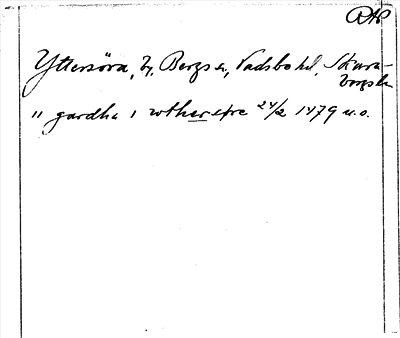 RAP
Yttersöra, by, Bergs sn, Vadsbo hd, Skara-
borgs län
ii gardha i wtherøre 24/2 1479 u.o.